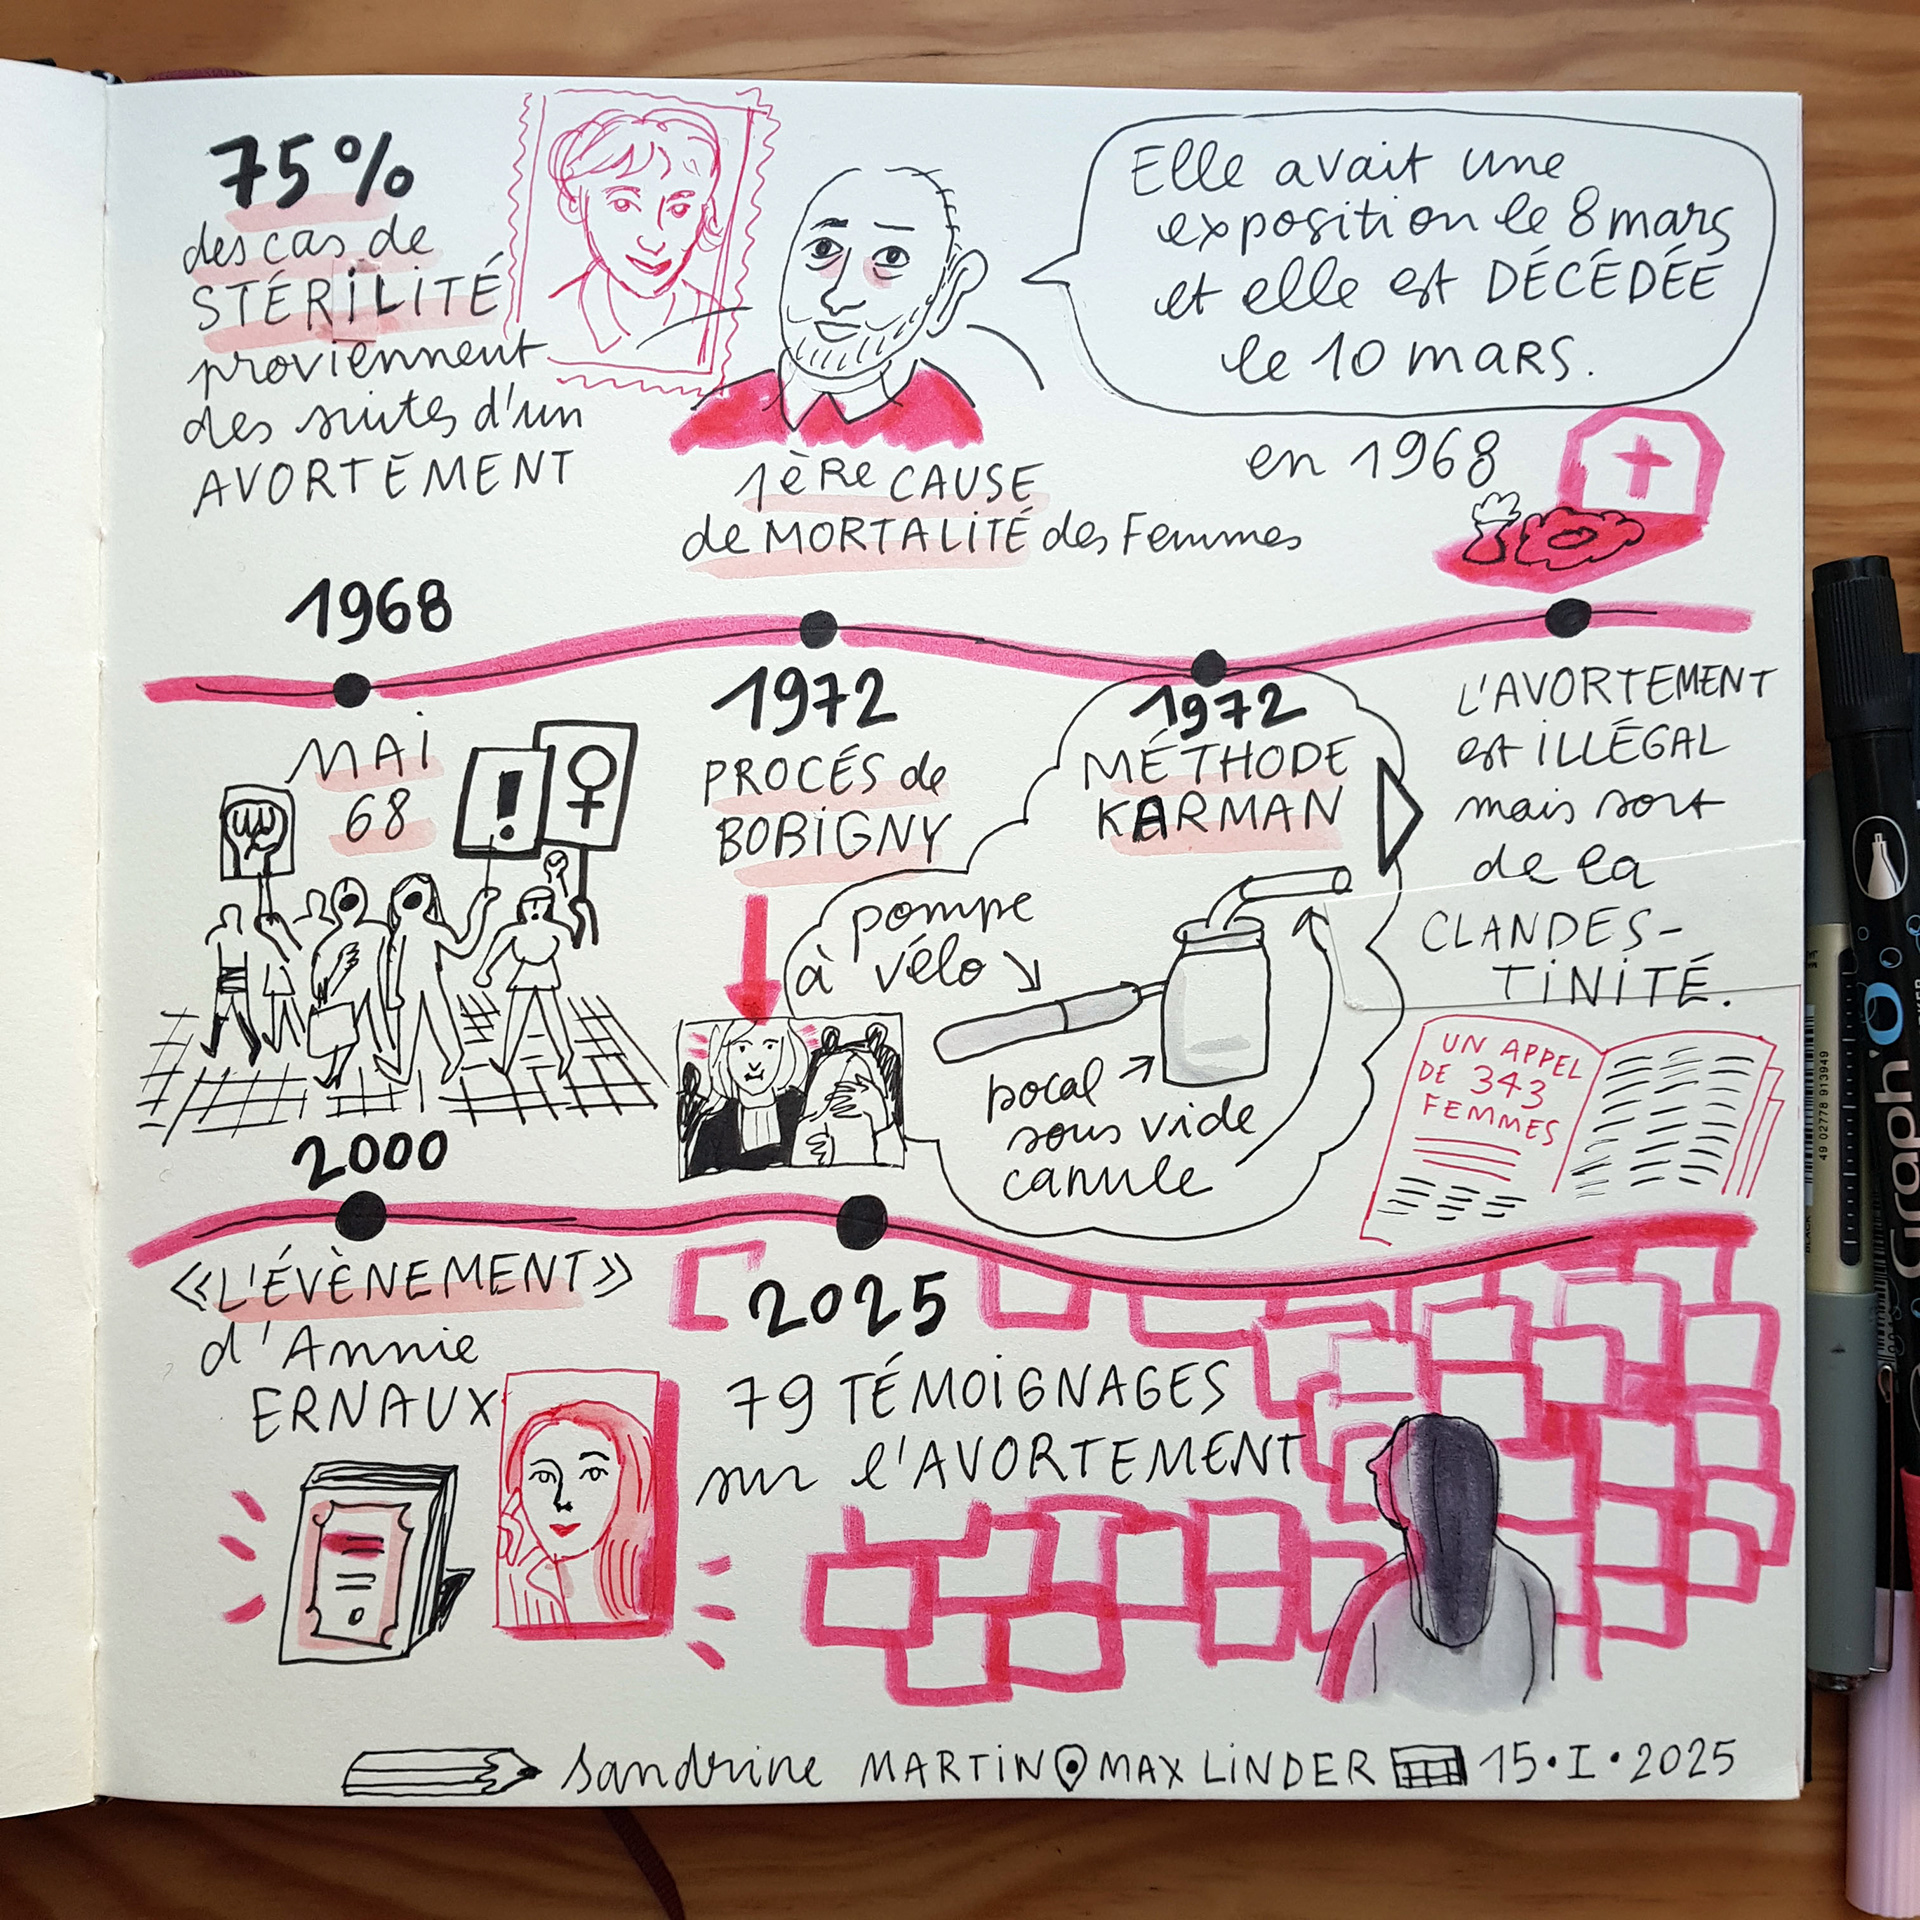 75%
des cas de
STÉRILITÉ
proviennent
des suites d'un
AVORTEMENT
Elle avait une
exposition le 8 mars
et elle est DÉCÉDÉE
le 10 mars.
en 1968
1ÈRE CAUSE
de MORTALITÉ des Femmes
1968
MAI
68
!
1972
PROCÉS de
BOBIGNY
1972
MÉTHODE
KARMAN
pompe
à vélo
bocal
sous vide
canule
L'AVORTEMENT
est iLLÉGAL
mais sort
de la
CLANDES-
TINITÉ.
UN APPEL
DE 343
FEMMES
2000
«L'ÉVÈNEMENT»
d'Annie
ERNAUX
2025
79 TÉMOIGNAGES
sur l'AVORTEMENT
Sandrine MARTIN MAX LINDER 15•I•2025
Graph'O
49 02778 913949
BLACK